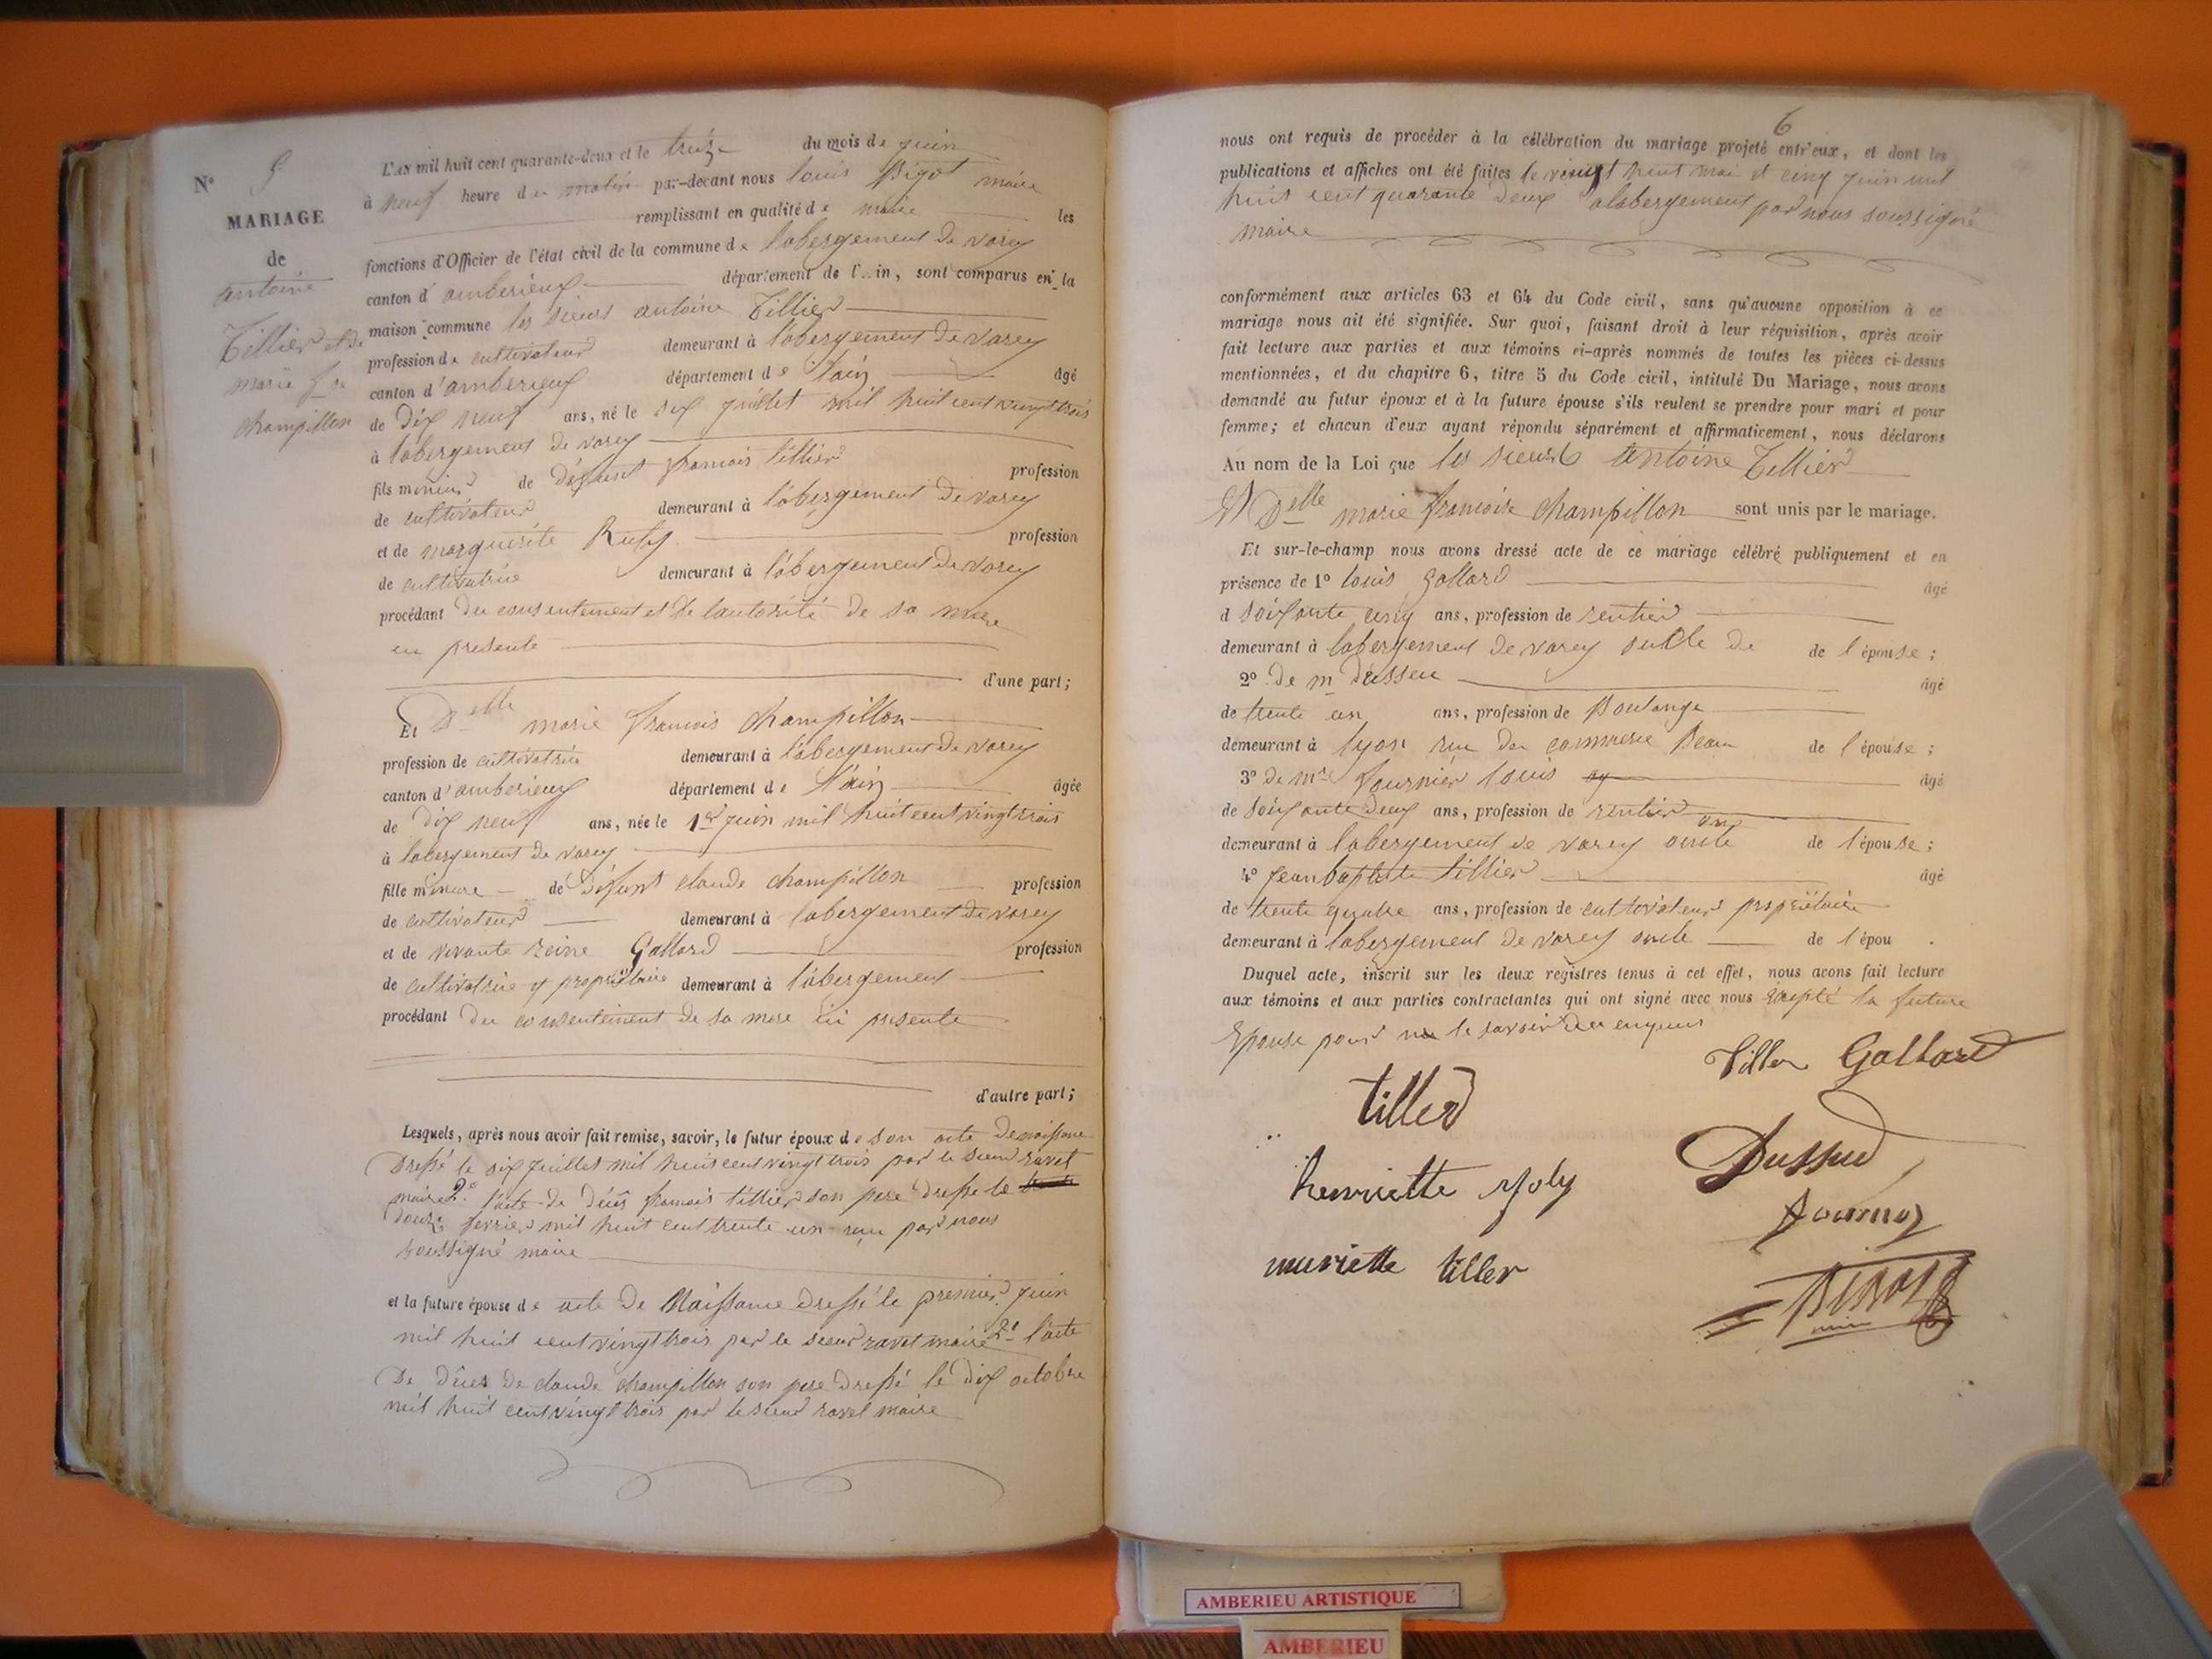 N°
MARIAGE
de
antoine
Tillier et de
marie fse
champillon
L'an mil huit cent quarante-deux et le treize du mois de juin
à neuf heure du matin par-devant nous louis Bigot maire
remplissant en qualité de maire les
fonctions d'Officier de l'état civil de la commune de labergement de varey
canton d'amberieux département de l'Ain, sont comparus en la
maison commune les sieurs antoine Tillier
profession de cultivateur demeurant à labergement de varey
canton d'amberieux département de l'ain âgé
de dix neuf ans, né le six juillet mil huit cent vingt trois
à labergement de varey
fils mineur de défunt francois tillier profession
de cultivateur demeurant à labergement de varey
et de marguerite Rufy profession
de cultivatrice demeurant à labergement de varey
procédant du consentement et de lautorité de sa mere
en presente
d'une part;
Et Delle marie francois champillon
profession de cultivatrice demeurant à labergement de varey
canton d'amberieux département de l'ain âgée
de dix neuf ans, née le 1er juin mil huit cent vingt trois
à labergement de varey
fille mineure de défunt claude champillon profession
de cultivateur demeurant à labergement de varey
et de vivante reine Gallard profession
de cultivatrice et propriétaire demeurant à labergement
procédant du consentement de sa mere ici presente
d'autre part;
Lesquels, après nous avoir fait remise, savoir, le futur époux de son acte de naissance
Dressé le six juillet mil huit cent vingt trois par le sieur ravet
maire 2° l'acte de décès francois tillier son pere dressé le
douze fevrier mil huit cent trente un reçu par nous
soussigné maire
et la future épouse de acte de Naissance dressé le premier juin
mil huit cent vingt trois par le sieur ravet maire 2° l'acte
De décès de claude champillon son pere dressé le dix octobre
mil huit cent vingt trois par le sieur ravet maire
6
nous ont requis de procéder à la célébration du mariage projeté entr'eux, et dont les
publications et affiches ont été faites le vingt huit mai et cinq juin mil
huit cent quarante deux alabergement par nous soussigné
maire
conformément aux articles 63 et 64 du Code civil, sans qu'aucune opposition à ce
mariage nous ait été signifiée. Sur quoi, faisant droit à leur réquisition, après avoir
fait lecture aux parties et aux témoins ci-après nommés de toutes les pièces ci-dessus
mentionnées, et du chapitre 6, titre 5 du Code civil, intitulé Du Mariage, nous avons
demandé au futur époux et à la future épouse s'ils veulent se prendre pour mari et pour
femme; et chacun d'eux ayant répondu séparément et affirmativement, nous déclarons
Au nom de la Loi que les sieurs Antoine Tillier
Et Delle marie francoise champillon sont unis par le mariage.
Et sur-le-champ nous avons dressé acte de ce mariage célébré publiquement et en
présence de 1° louis Gallard âgé
d soixante cinq ans, profession de rentier
demeurant à labergement de varey de l'épouse;
2° de m Dusseu âgé
de trente un ans, profession de Boulanger
demeurant à lyon rue du commerce de l'épouse;
3° de mre fournier louis âgé
de soixante deux ans, profession de rentier
demeurant à labergement de varey oncle de l'épouse;
4° Jean baptiste tillier âgé
de trente quatre ans, profession de cultivateur propriétaire
demeurant à labergement de varey oncle de l'épou .
Duquel acte, inscrit sur les deux registres tenus à cet effet, nous avons fait lecture
aux témoins et aux parties contractantes qui ont signé avec nous Excepté la future
Epouse pour ne le savoir de enquis
Tiller Gallard
tiller
Dussud
henriette Joly
fournier
muriette tiller
BIGOT
AMBERIEU ARTISTIQUE
AMBERIEU